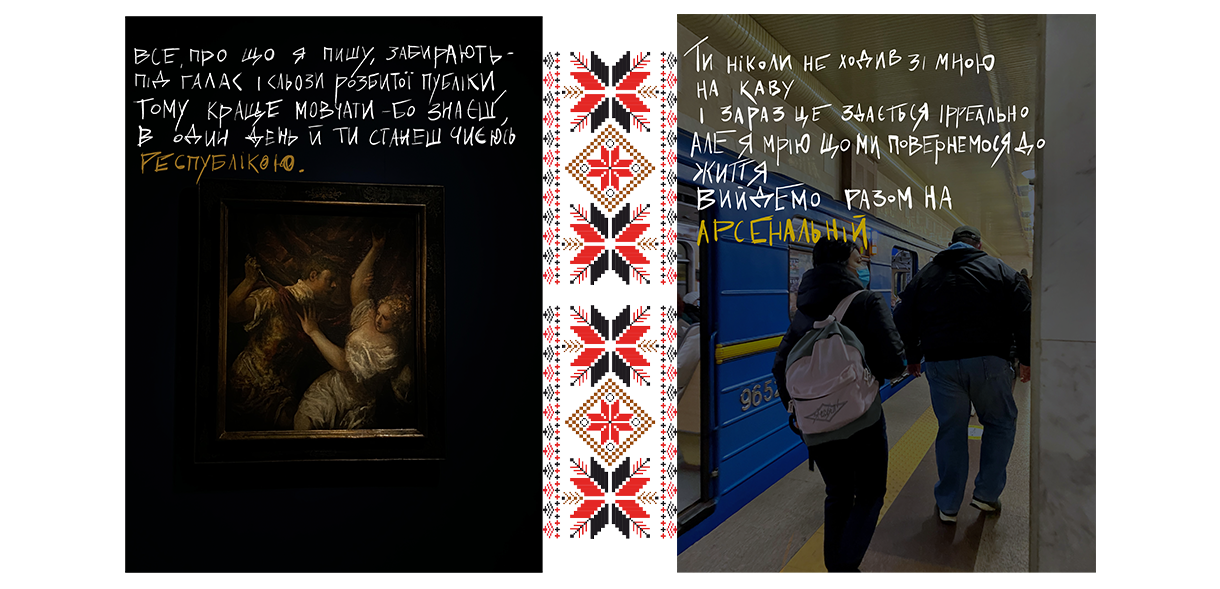 ВСЕ, ПРО ЩО Я ПИШУ, ЗАБИРАЮТЬ -
ПІД ГАЛАС І СЛЬОЗИ РОЗБИТОЇ ПУБЛІКИ
ТОМУ КРАЩЕ МОВЧАТИ - БО ЗНАЄШ,
В ОДИН ДЕНЬ Й ТИ СТАНЕШ ЧИЄЮСЬ
РЕСПУБЛІКОЮ.
ТИ НІКОЛИ НЕ ХОДИВ ЗІ МНОЮ
НА КАВУ
І ЗАРАЗ ЦЕ ЗДАЄТЬСЯ ІРРЕАЛЬНО
АЛЕ Я МРІЮ ЩО МИ ПОВЕРНЕМОСЯ ДО
ЖИТТЯ
ВИЙДЕМО РАЗОМ НА
АРСЕНАЛЬНІЙ